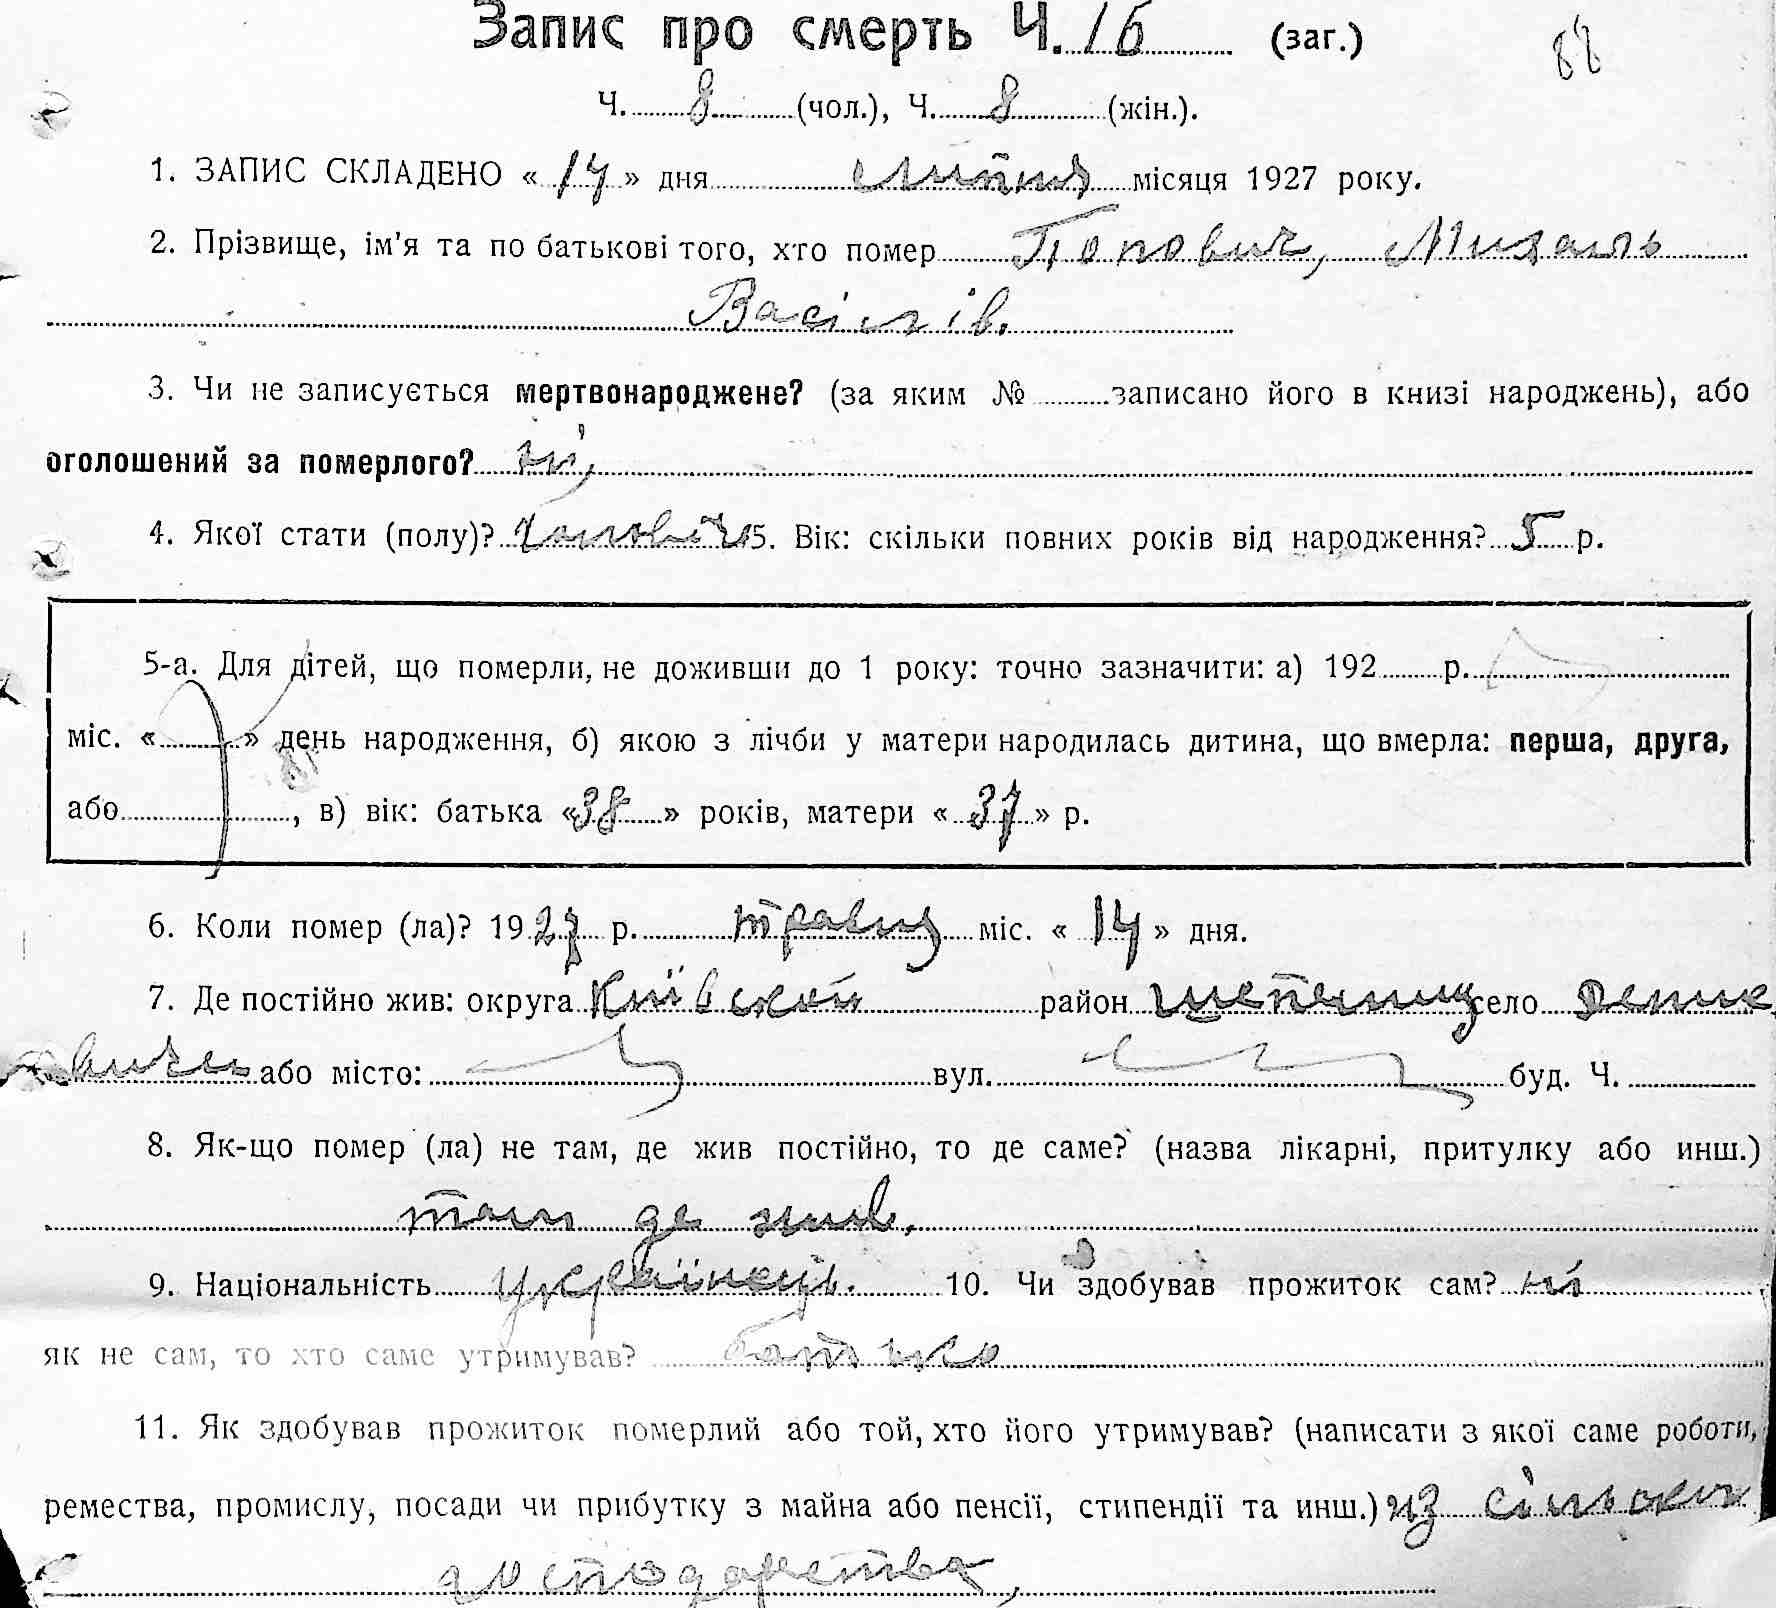 Запис про смерть Ч. 16 (заг.)
88
Ч. 8 (чол.), Ч. 8 (жін.).
1. ЗАПИС СКЛАДЕНО « 14 » дня липня місяця 1927 року.
2. Прізвище, ім'я та по батькові того, хто помер Попович, Михаль
Васілів.
3. Чи не записується мертвонароджене? (за яким № записано його в книзі народжень), або
оголошений за померлого? ні,
4. Якої стати (полу)? 5. Вік: скільки повних років від народження? 5 р.
5-а. Для дітей, що померли, не доживши до 1 року: точно зазначити: а) 192 р.
міс. « » день народження, б) якою з лічби у матери народилась дитина, що вмерла: перша, друга,
або , в) вік: батька «38» років, матери « 37 » р.
6. Коли помер (ла)? 1927 р. травня міс. « 14 » дня.
7. Де постійно жив: округа Київской район село
або місто: вул. буд. Ч.
8. Як-що помер (ла) не там, де жив постійно, то де саме? (назва лікарні, притулку або инш.)
там де жив.
9. Національність українець. 10. Чи здобував прожиток сам? ні
як не сам, то хто саме утримував? батько
11. Як здобував прожиток померлий або той, хто його утримував? (написати з якої саме роботи,
ремества, промислу, посади чи прибутку з майна або пенсії, стипендії та инш.) из
господарства,